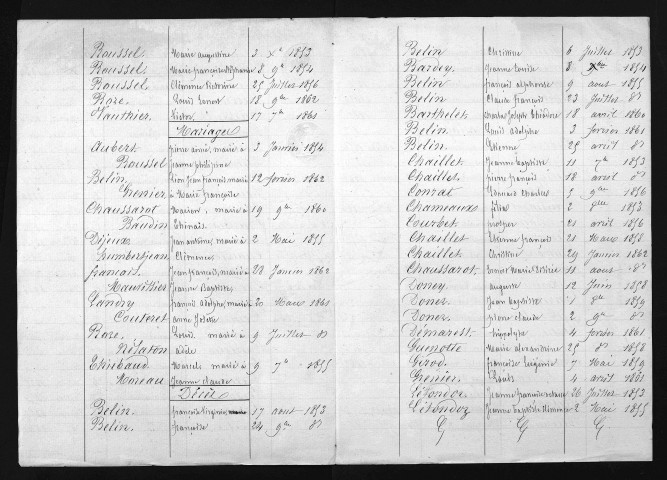 Roussel. Marie augustine 3 Xe 1853
Roussel. Marie françoise 8 9e 1854
Roussel Clémence Victorine 25 Juillet 1856
Roze. Louis 18 9bre 1862
Vauthier. Victor 17 7e 1861
Mariages
Aubert pierre aimé, marié à 3 Janvier 1854
Roussel jeanne philippine
Belin Léon Jean françois, marié 12 fevrier 1862
Grenier à Marie françoise
Chaussarot marié à 19 9bre 1860
Baudin
Dejeux jean antoine, marié à 2 Mai 1855
Humbertjean Clémence
françois Jean françois, marié à 28 Janvier 1862
Mauvillier Jeanne Baptiste
Landry françois adolphe, marié 20 Mars 1861
Couteret anne
Roze. Louis marié à 9 Juillet do
Nélaton adèle
Thiébaud Marcel marié à 9 7e 1855
Moreau Jeanne Claude
Décès
Belin. françoise Virginie 17 aout 1853
Belin. françoise 24 9bre do
Belin Christine 6 Juillet 1853
Bardey. Jeanne Louise 8 Xbre 1854
Belin françois alphonse 9 aout 1855
Belin Claude françois 23 Juillet do
Barthelet Charles Joseph Théodore 18 avril 1860
Belin Louis adolphe 3 fevrier 1861
Belin. Etienne 25 avril do
Chaillet Jeanne baptiste 11 7e 1853
Chaillet pierre françois 18 avril do
Contat Edouard Charles 5 9bre 1856
Chameaux félix 2 1853
Courbet prosper 21 avril 1856
Chaillet Etienne françois 21 Mars 1858
Chaillet Christine 29 Janvier 1862
Chaussarot. Marie 11 aout do
Auguste 12 Juin 1858
Jean baptiste 1 8e 1859
pierre claude 2 9e do
Démarest. hippolyte 4 fevrier 1861
Guenotte Marie alexandrine 25 do 1858
Girod. françoise Virginie 7 Mai 1859
Grenier. Louis 4 avril 1861
Jeanne françoise 26 Juillet 1853
Jeanne baptiste 2 Mai 1855